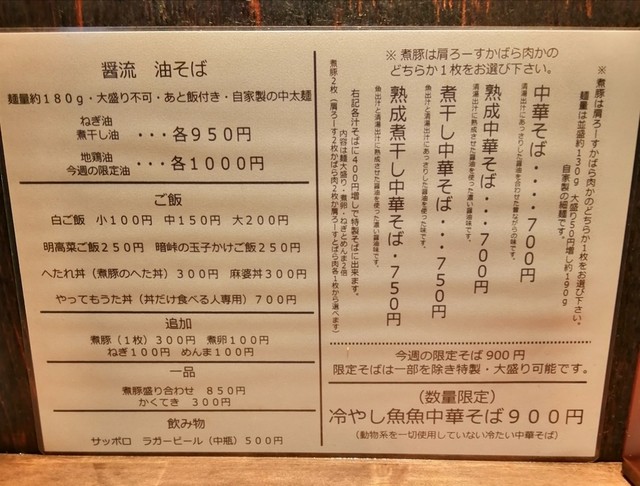 醤流　油そば
麺量約１８０ｇ・大盛り不可・あと飯付き・自家製の中太麺
ねぎ油
煮干し油　・・・各９５０円
地鶏油
今週の限定油　・・・各１０００円
ご飯
白ご飯　小１００円　中１５０円　大２００円
明高菜ご飯２５０円　暗峠の玉子かけご飯２５０円
へたれ丼（煮豚のへた丼）３００円　麻婆丼３００円
やってもうた丼（丼だけ食べる人専用）７００円
追加
煮豚（１枚）３００円　煮卵１００円
ねぎ１００円　めんま１００円
一品
煮豚盛り合わせ　８５０円
かくてき　３００円
飲み物
サッポロ　ラガービール（中瓶）５００円
※煮豚は肩ろーすかばら肉かのどちらか１枚をお選び下さい。
麺量は並盛約１３０ｇ　大盛り５０円増し約１９０ｇ
自家製の細麺です。
※煮豚は肩ろーすかばら肉かの
どちらか１枚をお選び下さい。
中華そば・・・・７００円
清湯出汁にあっさりした醤油を合わせた昔ながらの味です。
熟成中華そば・・・７００円
清湯出汁に熟成させた醤油を使った濃い醤油味です。
煮干し中華そば・・・７５０円
魚出汁と清湯出汁にあっさりした醤油を使った味です。
熟成煮干し中華そば・７５０円
魚出汁と清湯出汁に熟成させた醤油を使った濃い醤油味です。
右記各汁そばに４００円増しで特製そばに出来ます。
内容は麺大盛り・煮卵・ねぎとめんま２倍
煮豚２枚（肩ろーす２枚かばら肉２枚か肩ろーすとばら肉各１枚から選べます）
今週の限定そば９００円
限定そばは一部を除き特製・大盛り可能です。
（数量限定）
冷やし魚魚中華そば９００円
（動物系を一切使用していない冷たい中華そば）